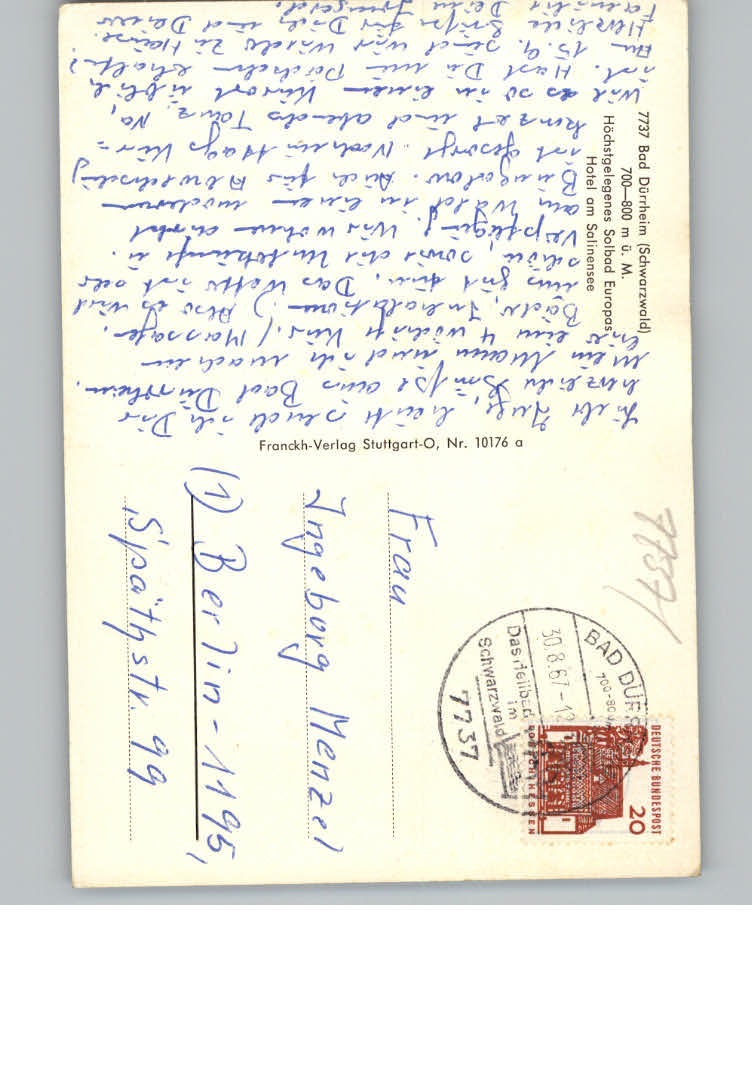 7737 Bad Dürrheim (Schwarzwald)
700—800 m ü. M.
Höchstgelegenes Solbad Europas
Hotel am Salinensee
Franckh-Verlag Stuttgart-O, Nr. 10176 a
Liebe Inge, heute sende ich Dir
herzliche Grüße aus Bad Dürrheim.
Mein Mann und ich machen
hier eine 4 wöchige Kur. (Massagen,
Bäder, Inhalation.) Also es wird
uns gut tun. Das Wetter ist sehr
schön, sowie die Unterkunft u.
Verpflegung. Wir wohnen direkt
am Wald in einem modernen
Bungalow. Auch für Abwechslung
ist gesorgt. Nachmittags Kur=
konzert und abends Tanz. Na,
wie es so in einem Kurort üblich
ist. Hast Du mein Päckchen erhalten?
Am 15.9. sind wir wieder zu Hause.
Herzliche Grüße für Dich und Deine
Familie Deine Irmgard.
Frau
Ingeborg Menzel
(1) Berlin-1195,
Späthstr. 99
7737/
BAD DÜRR
700-800m
30.8.67-12
Das Heilbad
im
Schwarzwald
7737
DEUTSCHE BUNDESPOST
20